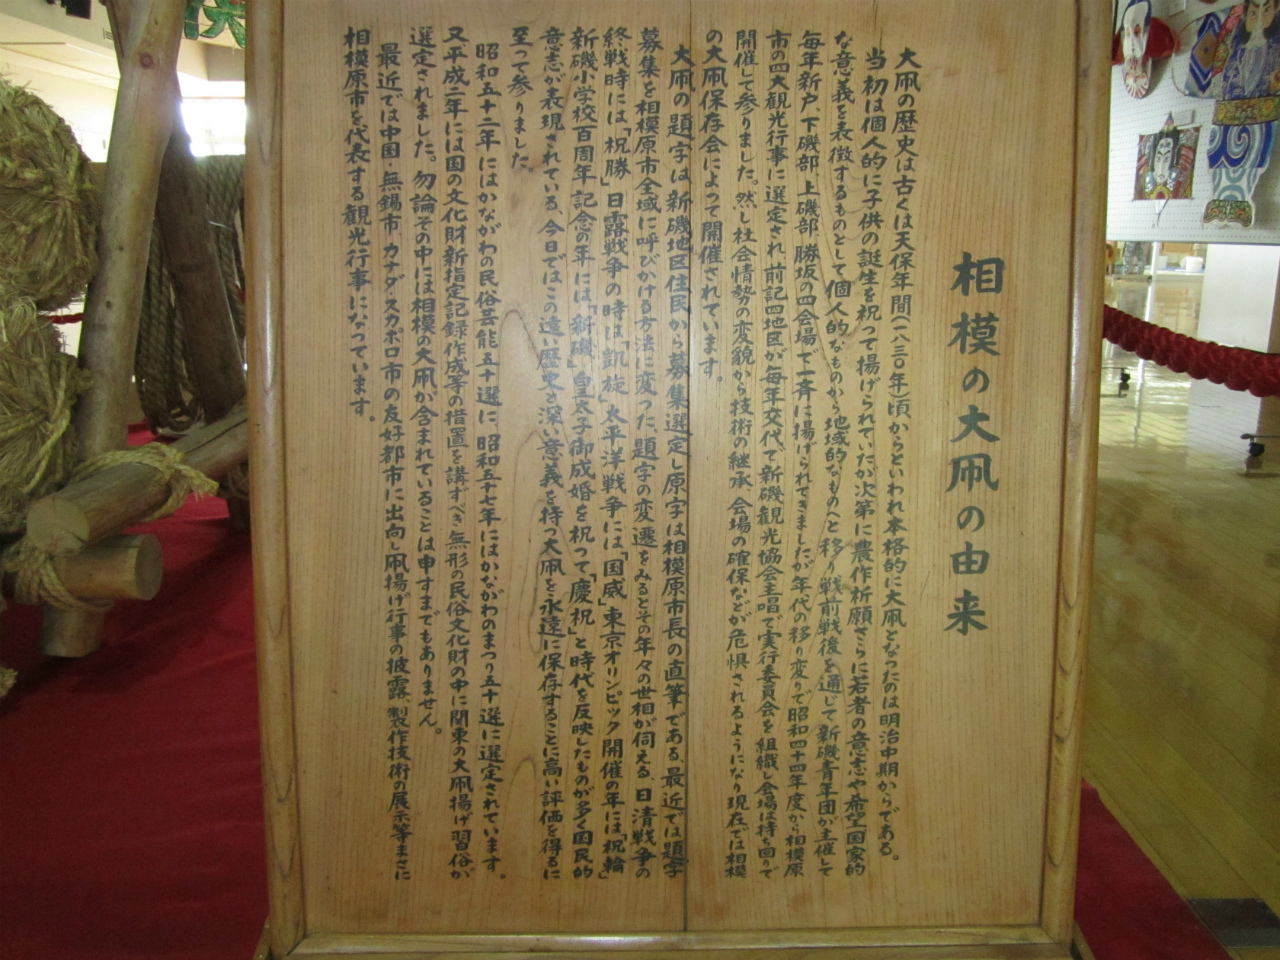 相模の大凧の由来
大凧の歴史は古くは天保年間(一八三〇年)頃からといわれ本格的に大凧となつたのは明治中期からである。
当初は個人的に子供の誕生を祝って揚げられていたが次第に農作祈願さらに若者の意志や希望国家的
な意義を表徴するものとして個人的なものから地域的なものへと移り戦前戦後を通じて新磯青年団が主催して
毎年新戸、下磯部、上磯部、勝坂の四会場で一斉に揚げられてきましたが年代の移り変りで昭和四十四年度から相模原
市の四大観光行事に選定され前記四地区が毎年交代で新磯観光協会主唱で実行委員会を組織し会場は持ち回りで
開催して参りました。然し社会情勢の変貌から技術の継承、会場の確保などが危惧されるようになり現在では相模
の大凧保存会によって開催されています。
大凧の題字は新磯地区住民から募集選定し原字は相模原市長の直筆である、最近では題字
募集を相模原市全域に呼びかける方法に変つた、題字の変遷をみるとその年々の世相が伺える、日清戦争の
終戦時には「祝勝」日露戦争の時は「凱旋」太平洋戦争には「国威」東京オリンピック開催の年には「祝輪」
新磯小学校百周年記念の年には「新磯」皇太子御成婚を祝つて「慶祝」と時代を反映したものが多く国民的
意志が表現されている、今日ではこの遠い歴史と深い意義を持つ大凧を永遠に保存することに高い評価を得るに
至って参りました。
昭和五十二年にはかながわの民俗芸能五十選に、昭和五十七年にはかながわのまつり五十選に選定されています。
又平成二年には国の文化財新指定記録作成等の措置を講ずべき無形の民俗文化財の中に関東の大凧揚げ習俗が
選定されました。勿論その中には相模の大凧が含まれていることは申すまでもありません。
最近では中国・無錫市カナダ・スカボロ市の友好都市に出向し凧揚げ行事の披露、製作技術の展示等まさに
相模原市を代表する観光行事になっています。